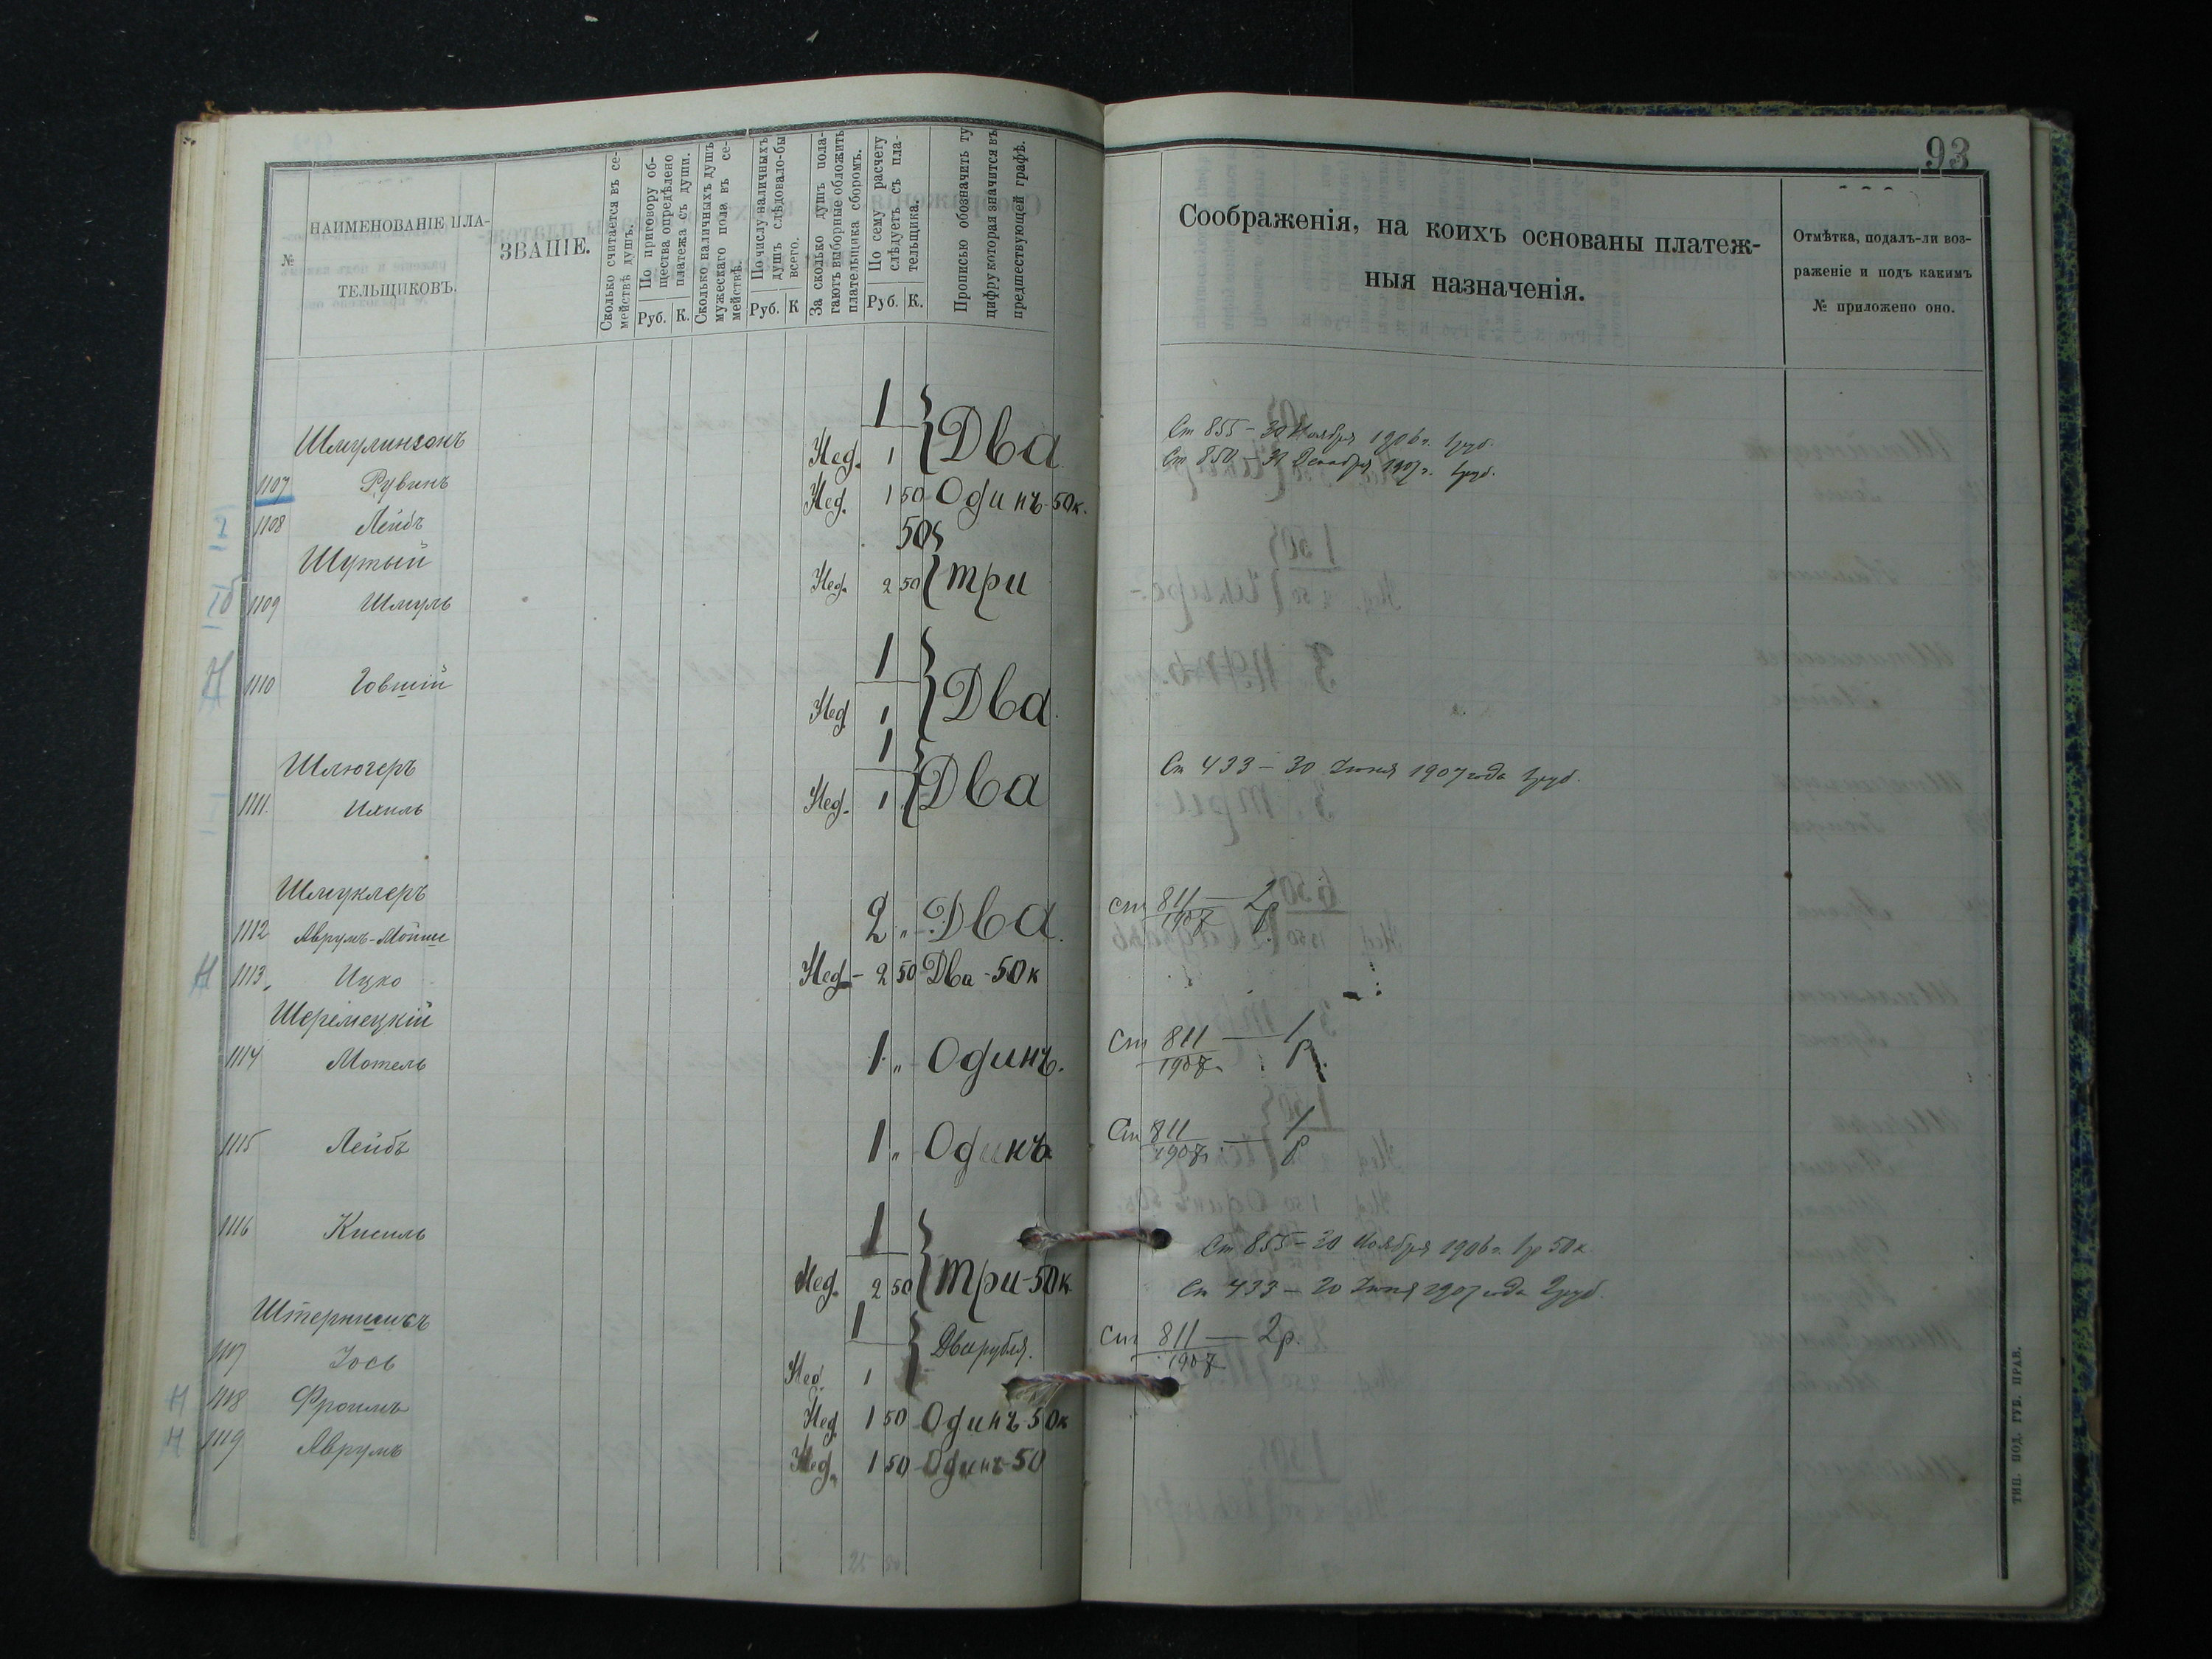 93
№
НАИМЕНОВАНІЕ ПЛА-
ТЕЛЬЩИКОВЪ.
ЗВАНІЕ.
Сколько считается въ се-
мействѣ душъ.
По приговору об-
щества опредѣлено
платежа съ души.
Руб. К.
Сколько наличныхъ душъ
мужескаго пола въ се-
мействѣ.
По числу наличныхъ
душъ слѣдовало-бы
всего.
Руб. К
За сколько душъ пола-
гаютъ выборные обложить
плательщика сборомъ.
По сему расчету
слѣдуетъ съ пла-
тельщика.
Руб. К.
Прописью обозначить ту
цифру которая значится въ
предшествующей графѣ.
Соображенія, на коихъ основаны платеж-
ныя назначенія.
Отмѣтка, подалъ-ли воз-
раженіе и подъ какимъ
№ приложено оно.
1
Шмулинзонъ Нед. 1 Два
Ст 855 – 30 Ноября 1906 г. 1 руб.
Ст 850 – 31 Декабря 1907 г. 1 руб.
1107 Рувинъ Нед. 1 50 Одинъ 50к.
1108 Лейбъ 50
Шутый Нед. 2 50 Три
1109 Шмуль
1
1110 Говшій Нед 1 Два
1
Шлюгеръ Два Ст 433 – 30 Іюня 1907 года 1 руб.
1111. Ихиль Нед. 1
Шмуклеръ
1112 Аврумъ-Мойше 2 „ Два ст 811 / 1907 — 2 р
Н 1113 Ицко Нед – 2 50 Два - 50 к
Шеремецкій
1114 Мотель 1 „ Одинъ. Ст 811 / 1907 — 1 р.
1115 Лейбъ 1 „ Одинъ Ст 811 / 1907 — 1 р
1116 Кисиль 1
Ст 855 – 30 Ноября 1906 г. 1 р 50 к.
Нед. 2 50 Три - 50 к
Ст 433 – 20 Іюня 1907 года 2 руб.
1 Два рубля. Ст 811 / 1907 — 2 р.
1117 Іось Нед. 1
Н 1118 Фроимъ Нед 1 50 Одинъ 50к
Н 1119 Аврумъ Нед. 1 50 Одинъ-50
ТИП. ПОД. ГУБ. ПРАВ.